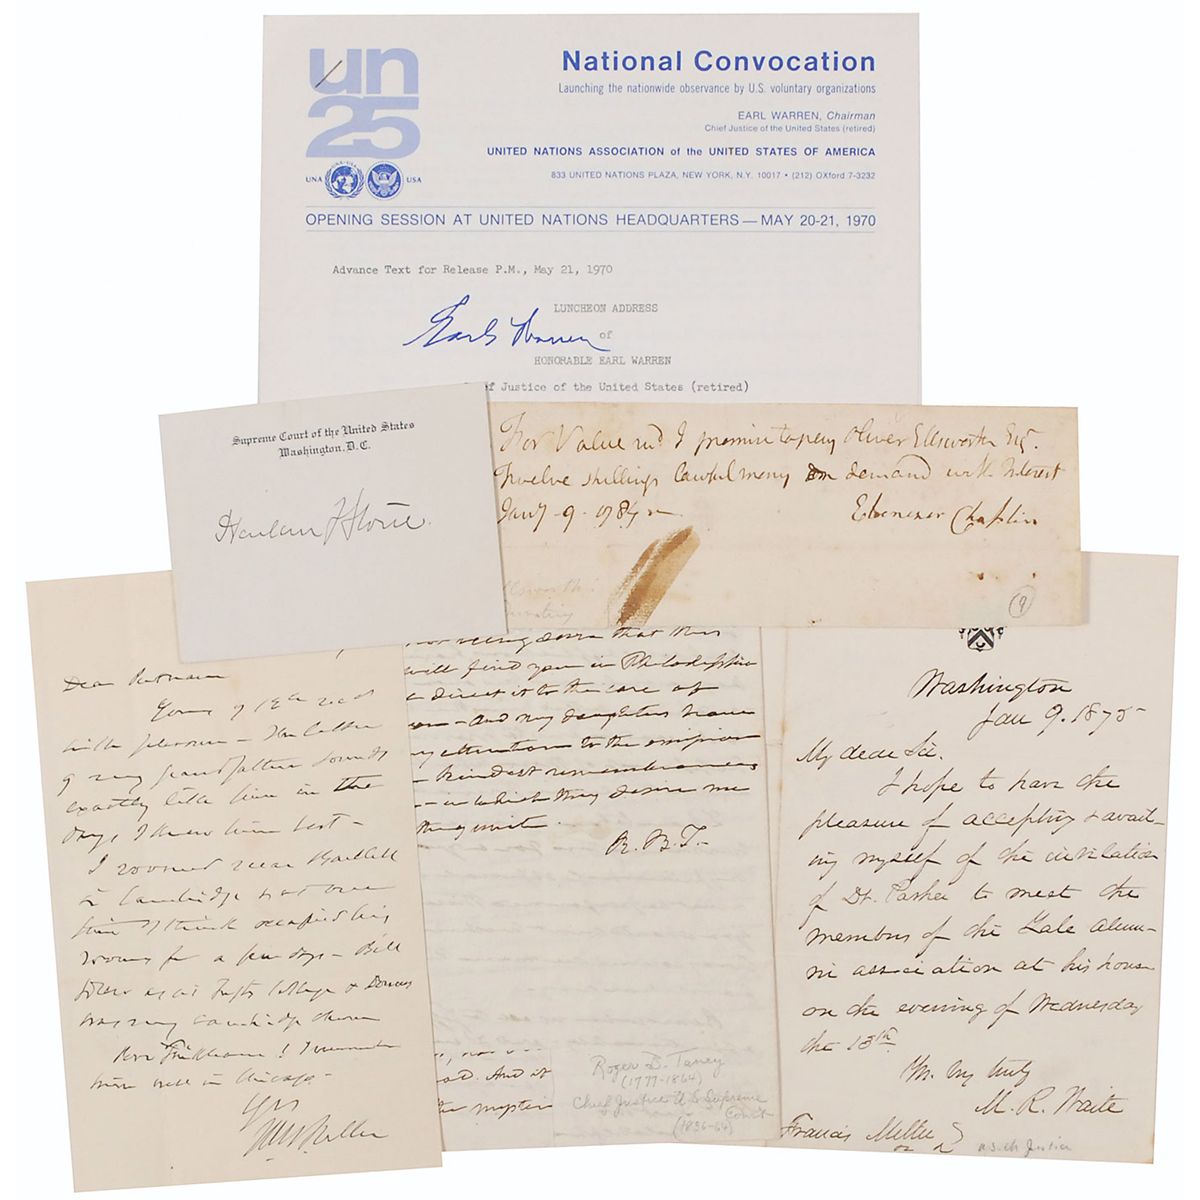 un
25
UNA
USA
National Convocation
Launching the nationwide observance by U.S. voluntary organizations
EARL WARREN, Chairman
Chief Justice of the United States (retired)
UNITED NATIONS ASSOCIATION of the UNITED STATES OF AMERICA
833 UNITED NATIONS PLAZA, NEW YORK, N.Y. 10017 • (212) OXford 7-3232
OPENING SESSION AT UNITED NATIONS HEADQUARTERS — MAY 20-21, 1970
Advance Text for Release P.M., May 21, 1970
LUNCHEON ADDRESS
Earl Warren
of
HONORABLE EARL WARREN
f Justice of the United States (retired)
Supreme Court of the United States
Washington, D.C.
Harlan F Stone.
For Value recd I promise to pay Oliver Ellsworth Esqr.
Twelve shillings Lawful money on demand with Interest
Jany 9 - 1784
Ebenezer Chaplin
9
Dear
Yours of 12th recd
with pleasure — The letter
of my grandfather sounds
exactly like him in the
days I knew him best —
I roomed near Bartlett
in Cambridge
him I think occupied his
rooms for a few days — Bill
College &
was my Cambridge chum
! I remember
him well in Chicago —
Yrs
Fuller
that this
will find you in Philadelphia
direct it to the care of
— And my daughters have
my attention to the
kindest remembrances
— in which they desire me
to unite.
R. B. T. —
And at
the
Roger B. Taney
(1777-1864)
Chief Justice U.S. Supreme
Court
(1836-64)
Washington
Jan 9. 1875
My dear Sir.
I hope to have the
pleasure of accepting & avail-
ing myself of the invitation
of Dr. Parker to meet the
members of the Yale Alum-
ni association at his house
on the evening of Wednesday
the 13th.
Yr. truly
M. R. Waite
Francis Miller
U.S. Ch Justice